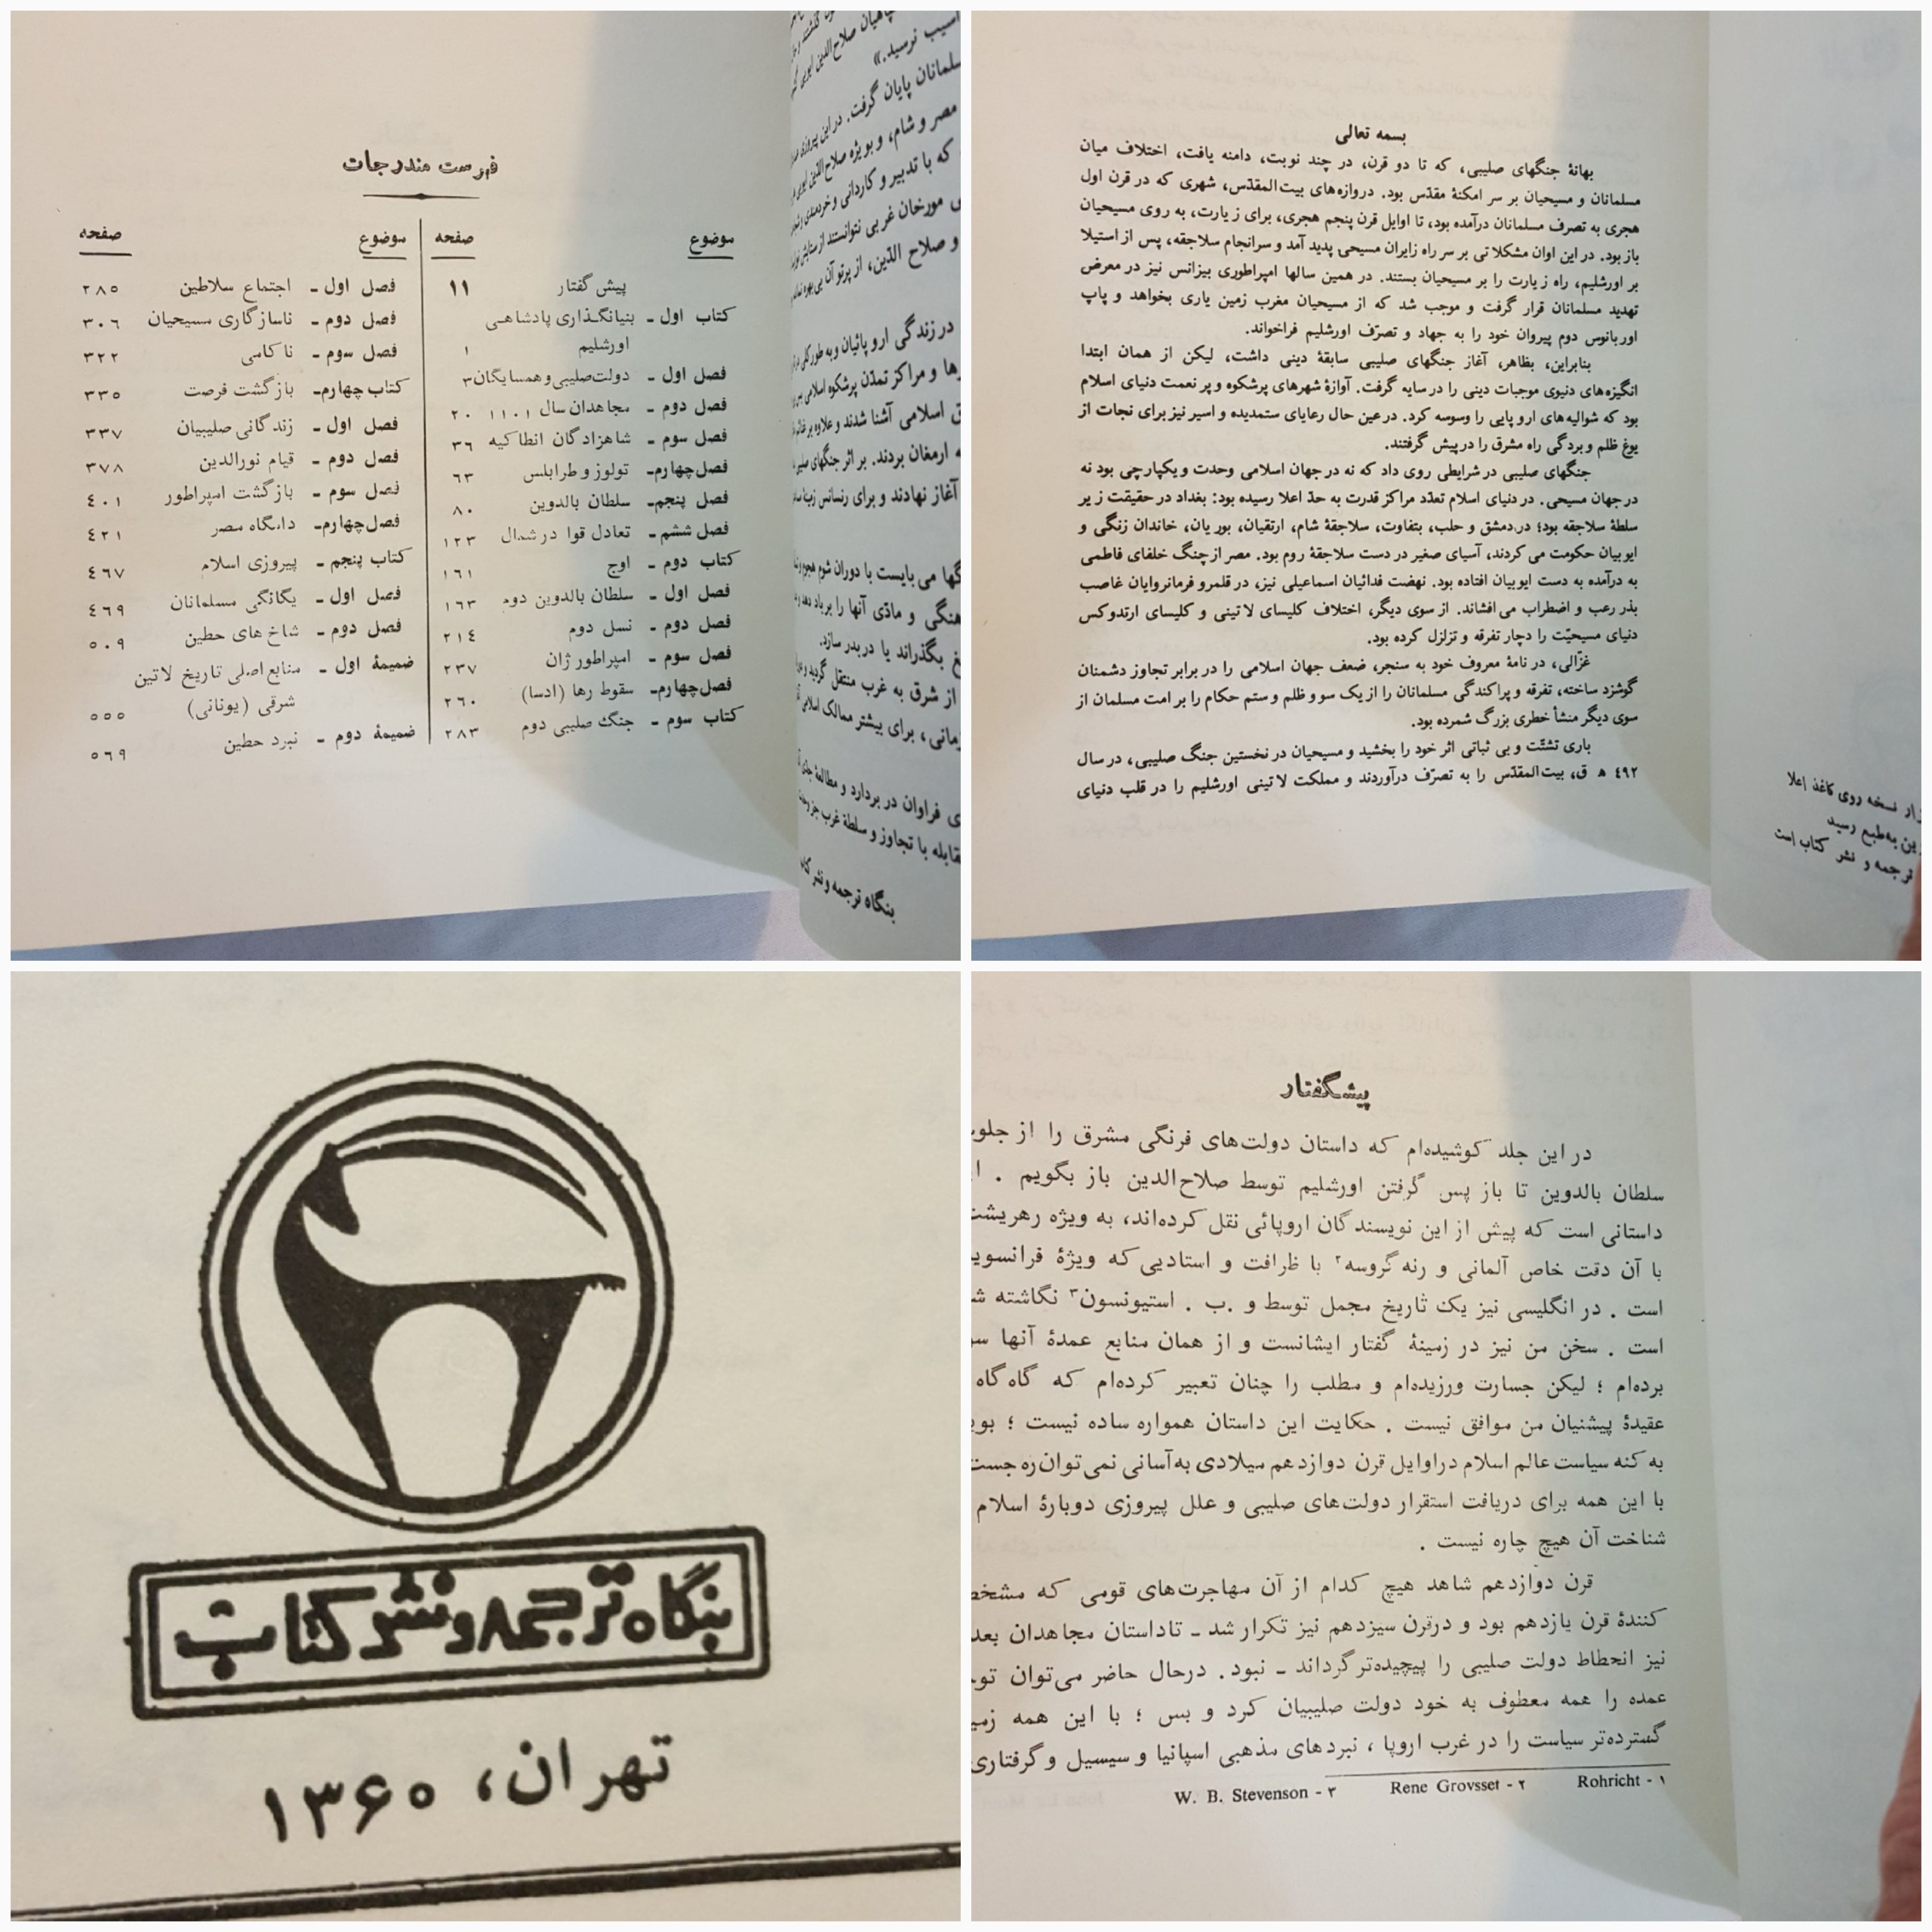 فهرست مندرجات
موضوع صفحه
پیش گفتار ۱۱
کتاب اول ـ بنیانگـذاری پادشاهـی
اورشلیم ۱
فصل اول ـ دولت‌صلیبی‌وهمسایگان ۳
فصل دوم ـ مجاهدان سال ۱۱۰۱ ۲۰
فصل سوم ـ شاهزادگان انطاکیه ۳۶
فصل‌چهارم‌ـ تولوز و طرابلس ۶۳
فصل پنجم‌ـ سلطان بالدوین ۸۰
فصل ششم‌ـ تعادل قوا در شمال ۱۲۳
کتاب دوم ـ اوج ۱۶۱
فصل اول ـ سلطان بالدوین دوم ۱۶۳
فصل دوم ـ نسل دوم ۲۱٤
فصل سوم ـ امپراطور ژان ۲۳۷
فصل‌چهارم‌ـ سقوط رها (ادسا) ۲۶۰
کتاب سوم ـ جنگ صلیبی دوم ۲۸۳
موضوع صفحه
فصل اول ـ اجتماع سلاطین ۲۸۵
فصل دوم ـ ناسازگاری مسیحیان ۳۰۶
فصل سوم ـ ناکامی ۳۲۲
کتاب چهارم‌ـ بازگشت فرصت ۳۳۵
فصل اول ـ زندگانی صلیبیان ۳۳۷
فصل دوم ـ قیام نورالدین ۳۷۸
فصل سوم ـ بازگشت امپراطور ٤۰۱
فصل‌چهارم‌ـ دامگاه مصر ٤۲۱
کتاب پنجم ـ پیروزی اسلام ٤۶۷
فصل اول ـ یگانگی مسلمانان ٤۶۹
فصل دوم ـ شاخ‌های حطین ۵۰۹
ضمیمهٔ اول ـ منابع اصلی تاریخ لاتین
شرقی (یونانی) ۵۵۵
ضمیمهٔ دوم ـ نبرد حطین ۵۶۹
آسیب نرسید.»
مسلمانان پایان گرفت. در این پیروزی
مصر و شام، و بویژه صلاح‌الدین ایوبی
که با تدبیر و کاردانی و خردمندی
مورخان غربی نتوانستند از ستایش
و صلاح الدّین، از پرتو آن بی‌بهره
در زندگی اروپائیان و به طور کلی
و مراکز تمدّن پرشکوه اسلامی
اسلامی آشنا شدند و علاوه بر
ارمغان بردند. بر اثر جنگهای
آغاز نهادند و برای رنسانس
می‌بایست با دوران شوم هجوم
و مادّی آنها را بر باد دهد
بگذراند یا دربدر سازد.
از شرق به غرب منتقل گردید
برای بیشتر ممالک اسلامی
فراوان در بردارد و مطالعهٔ
با تجاوز و سلطهٔ غرب جز
بنگاه ترجمه و نشر
بسمه تعالی
بهانهٔ جنگهای صلیبی، که تا دو قرن، در چند نوبت، دامنه یافت، اختلاف میان
مسلمانان و مسیحیان بر سر امکنهٔ مقدّس بود. دروازه‌های بیت‌المقدّس، شهری که در قرن اول
هجری به تصرف مسلمانان درآمده بود، تا اوایل قرن پنجم هجری، برای زیارت، به روی مسیحیان
باز بود. در این اوان مشکلاتی بر سر راه زایران مسیحی پدید آمد و سرانجام سلاجقه، پس از استیلا
بر اورشلیم، راه زیارت را بر مسیحیان بستند. در همین سالها امپراطوری بیزانس نیز در معرض
تهدید مسلمانان قرار گرفت و موجب شد که از مسیحیان مغرب زمین یاری بخواهد و پاپ
اوربانوس دوم پیروان خود را به جهاد و تصرّف اورشلیم فراخواند.
بنابراین، بظاهر، آغاز جنگهای صلیبی سابقهٔ دینی داشت، لیکن از همان ابتدا
انگیزه‌های دنیوی موجبات دینی را در سایه گرفت. آوازهٔ شهرهای پرشکوه و پر نعمت دنیای اسلام
بود که شوالیه‌های اروپایی را وسوسه کرد. در عین حال رعایای ستمدیده و اسیر نیز برای نجات از
یوغ ظلم و بردگی راه مشرق را در پیش گرفتند.
جنگهای صلیبی در شرایطی روی داد که نه در جهان اسلامی وحدت و یکپارچی بود نه
در جهان مسیحی. در دنیای اسلام تعدّد مراکز قدرت به حدّ اعلا رسیده بود: بغداد در حقیقت زیر
سلطهٔ سلاجقه بود؛ در دمشق و حلب، بتفاوت، سلاجقهٔ شام، ارتقیان، بوریان، خاندان زنگی و
ایوبیان حکومت می‌کردند، آسیای صغیر در دست سلاجقهٔ روم بود. مصر از چنگ خلفای فاطمی
به درآمده به دست ایوبیان افتاده بود. نهضت فدائیان اسماعیلی نیز، در قلمرو فرمانروایان غاصب
بذر رعب و اضطراب می‌افشاند. از سوی دیگر، اختلاف کلیسای لاتینی و کلیسای ارتدوکس
دنیای مسیحیّت را دچار تفرقه و تزلزل کرده بود.
غزّالی، در نامهٔ معروف خود به سنجر، ضعف جهان اسلامی را در برابر تجاوز دشمنان
گوشزد ساخته، تفرقه و پراکندگی مسلمانان را از یک سو و ظلم و ستم حکام را بر امت مسلمان از
سوی دیگر منشأ خطری بزرگ شمرده بود.
باری تشتّت و بی ثباتی اثر خود را بخشید و مسیحیان در نخستین جنگ صلیبی، در سال
٤۹۲ ه‍ ق، بیت‌المقدّس را به تصرّف درآوردند و مملکت لاتینی اورشلیم را در قلب دنیای
نسخه روی کاغذ اعلا
به‌طبع رسید
ترجمه و نشر کتاب است
بنگاه ترجمه و نشر کتاب
تهران، ۱۳۶۰
پیشگفتار
در این جلد کوشیده‌ام که داستان دولت‌های فرنگی مشرق را از جلوس
سلطان بالدوین تا باز پس گرفتن اورشلیم توسط صلاح‌الدین باز بگویم .
داستانی است که پیش از این نویسندگان اروپائی نقل کرده‌اند، به ویژه رهریشت
با آن دقت خاص آلمانی و رنه گروسه۲ با ظرافت و استادیی که ویژهٔ
است . در انگلیسی نیز یک تاریخ مجمل توسط و .ب . استیونسون۳ نگاشته
است . سخن من نیز در زمینهٔ گفتار ایشانست و از همان منابع عمدهٔ آنها
برده‌ام ؛ لیکن جسارت ورزیده‌ام و مطلب را چنان تعبیر کرده‌ام که گاه گاه
عقیدهٔ پیشنیان من موافق نیست . حکایت این داستان همواره ساده نیست ؛
به کنه سیاست عالم اسلام در اوایل قرن دوازدهم میلادی به‌آسانی نمی‌توان ره جست
با این همه برای دریافت استقرار دولت‌های صلیبی و علل پیروزی دوبارهٔ اسلام
شناخت آن هیچ چاره نیست .
قرن دوازدهم شاهد هیچ کدام از آن مهاجرت‌های قومی که
کنندهٔ قرن یازدهم بود و درقرن سیزدهم نیز تکرار شد ـ تاداستان مجاهدان بعد
نیز انحطاط دولت صلیبی را پیچیده‌تر گرداند ـ نبود. درحال حاضر می‌توان
عمده را همه معطوف به خود دولت صلیبیان کرد و بس ؛ با این همه
گسترده‌تر سیاست را در غرب اروپا ، نبردهای مذهبی اسپانیا و سیسیل و گرفتاری
۱ - Rohricht ۲ - Rene Grovsset ۳ - W. B. Stevenson